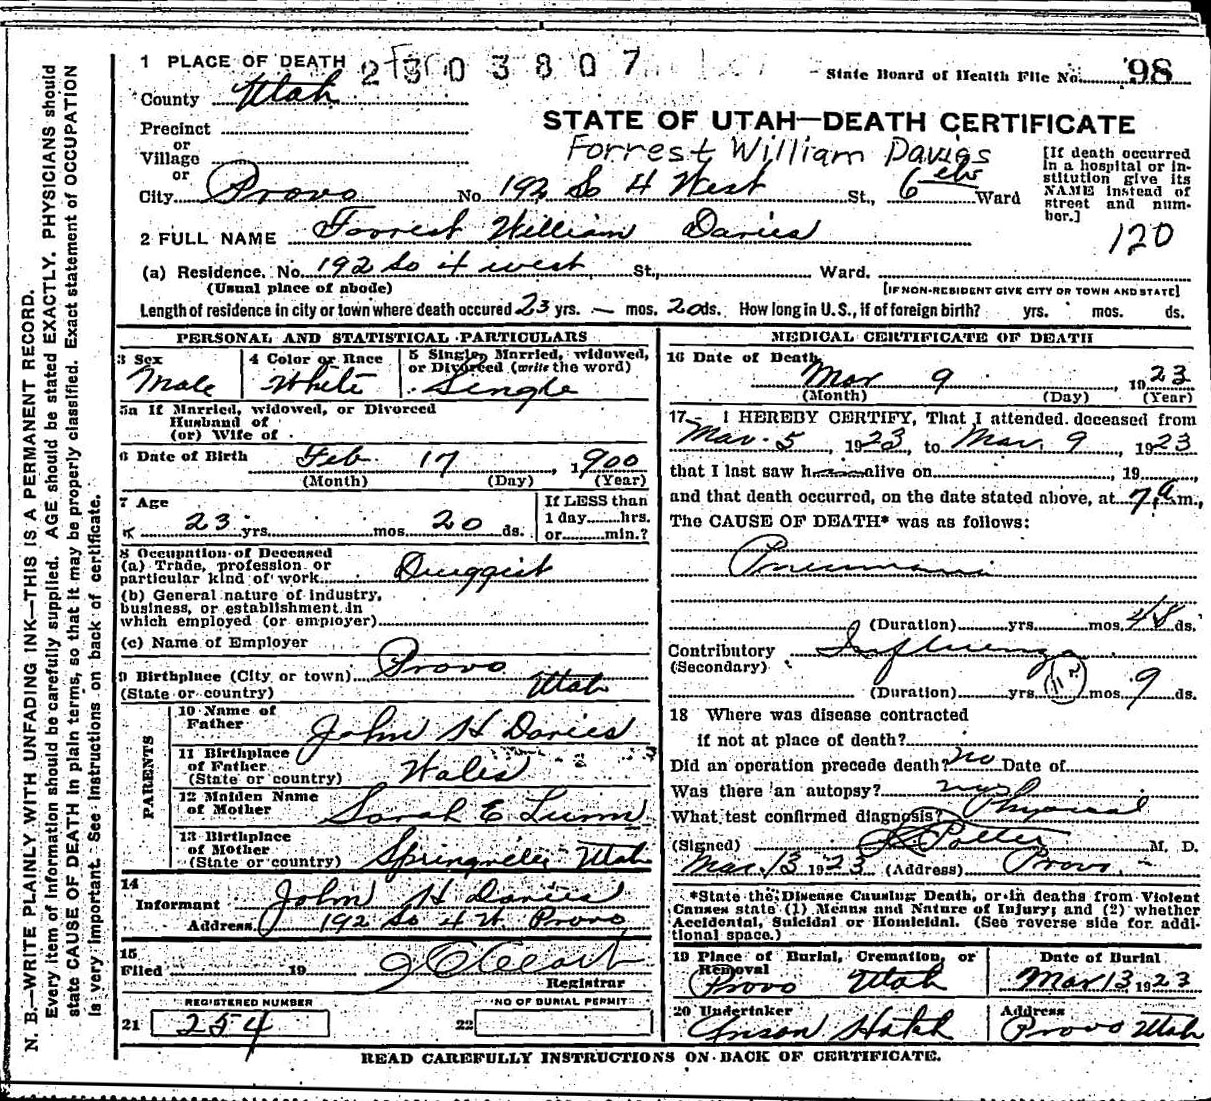 1 PLACE OF DEATH 2303807 State Board of Health File No. 98
County Utah
STATE OF UTAH—DEATH CERTIFICATE
Precinct
or
Village
or
Forrest William Davies
[If death occurred in a hospital or institution give its NAME instead of street and number.]
City Provo No 192 So 4 West St., 6 Ward
120
2 FULL NAME Forrest William Davies
(a) Residence. No. 192 So 4 west St., Ward.
(Usual place of abode) [IF NON-RESIDENT GIVE CITY OR TOWN AND STATE]
Length of residence in city or town where death occured 23 yrs. — mos. 20 ds. How long in U. S., if of foreign birth? yrs. mos. ds.
PERSONAL AND STATISTICAL PARTICULARS
3 Sex
Male
4 Color or Race
White
5 Single, Married, widowed, or Divorced (write the word)
Single
5a If Married, widowed, or Divorced
Husband of
(or) Wife of
6 Date of Birth Feb 17, 1900
(Month) (Day) (Year)
7 Age
23 yrs. mos. 20 ds.
If LESS than
1 day hrs.
or min.?
8 Occupation of Deceased
(a) Trade, profession or
particular kind of work Druggist
(b) General nature of industry,
business, or establishment in
which employed (or employer)
(c) Name of Employer
9 Birthplace (City or town) Provo
(State or country) Utah
PARENTS
10 Name of
Father John H Davies
11 Birthplace
of Father
(State or country) Wales
12 Maiden Name
of Mother Sarah E
13 Birthplace
of Mother
(State or country) Utah
14
Informant John H Davies
Address 192 So 4 W. Provo
15
Filed 19
Registrar
REGISTERED NUMBER
21 254
NO OF BURIAL PERMIT
22
MEDICAL CERTIFICATE OF DEATH
16 Date of Death
Mar 9, 1923
(Month) (Day) (Year)
17 - I HEREBY CERTIFY, That I attended deceased from
Mar. 5, 1923, to Mar. 9, 1923
that I last saw h alive on 19
and that death occurred, on the date stated above, at 7 a m.,
The CAUSE OF DEATH* was as follows:
(Duration) yrs. mos. ds.
Contributory Influenza
(Secondary)
(Duration) yrs. mos. 9 ds.
18 Where was disease contracted
if not at place of death?
Did an operation precede death? no Date of
Was there an autopsy?
What test confirmed diagnosis? Physical
(Signed) M. D.
Mar. 13 1923 (Address) Provo
*State the Disease Causing Death, or in deaths from Violent
Causes state (1) Means and Nature of Injury; and (2) whether
Accidental, Suicidal or Homicidal. (See reverse side for addi-
tional space.)
19 Place of Burial, Cremation, or
Removal
Provo Utah
Date of Burial
Mar 13 1923
20 Undertaker
Anson Hatch
Address
Provo Utah
READ CAREFULLY INSTRUCTIONS ON BACK OF CERTIFICATE.
N. B.—WRITE PLAINLY WITH UNFADING INK—THIS IS A PERMANENT RECORD.
Every item of information should be carefully supplied. AGE should be stated EXACTLY. PHYSICIANS should
state CAUSE OF DEATH in plain terms, so that it may be properly classified. Exact statement of OCCUPATION
is very important. See instructions on back of certificate.